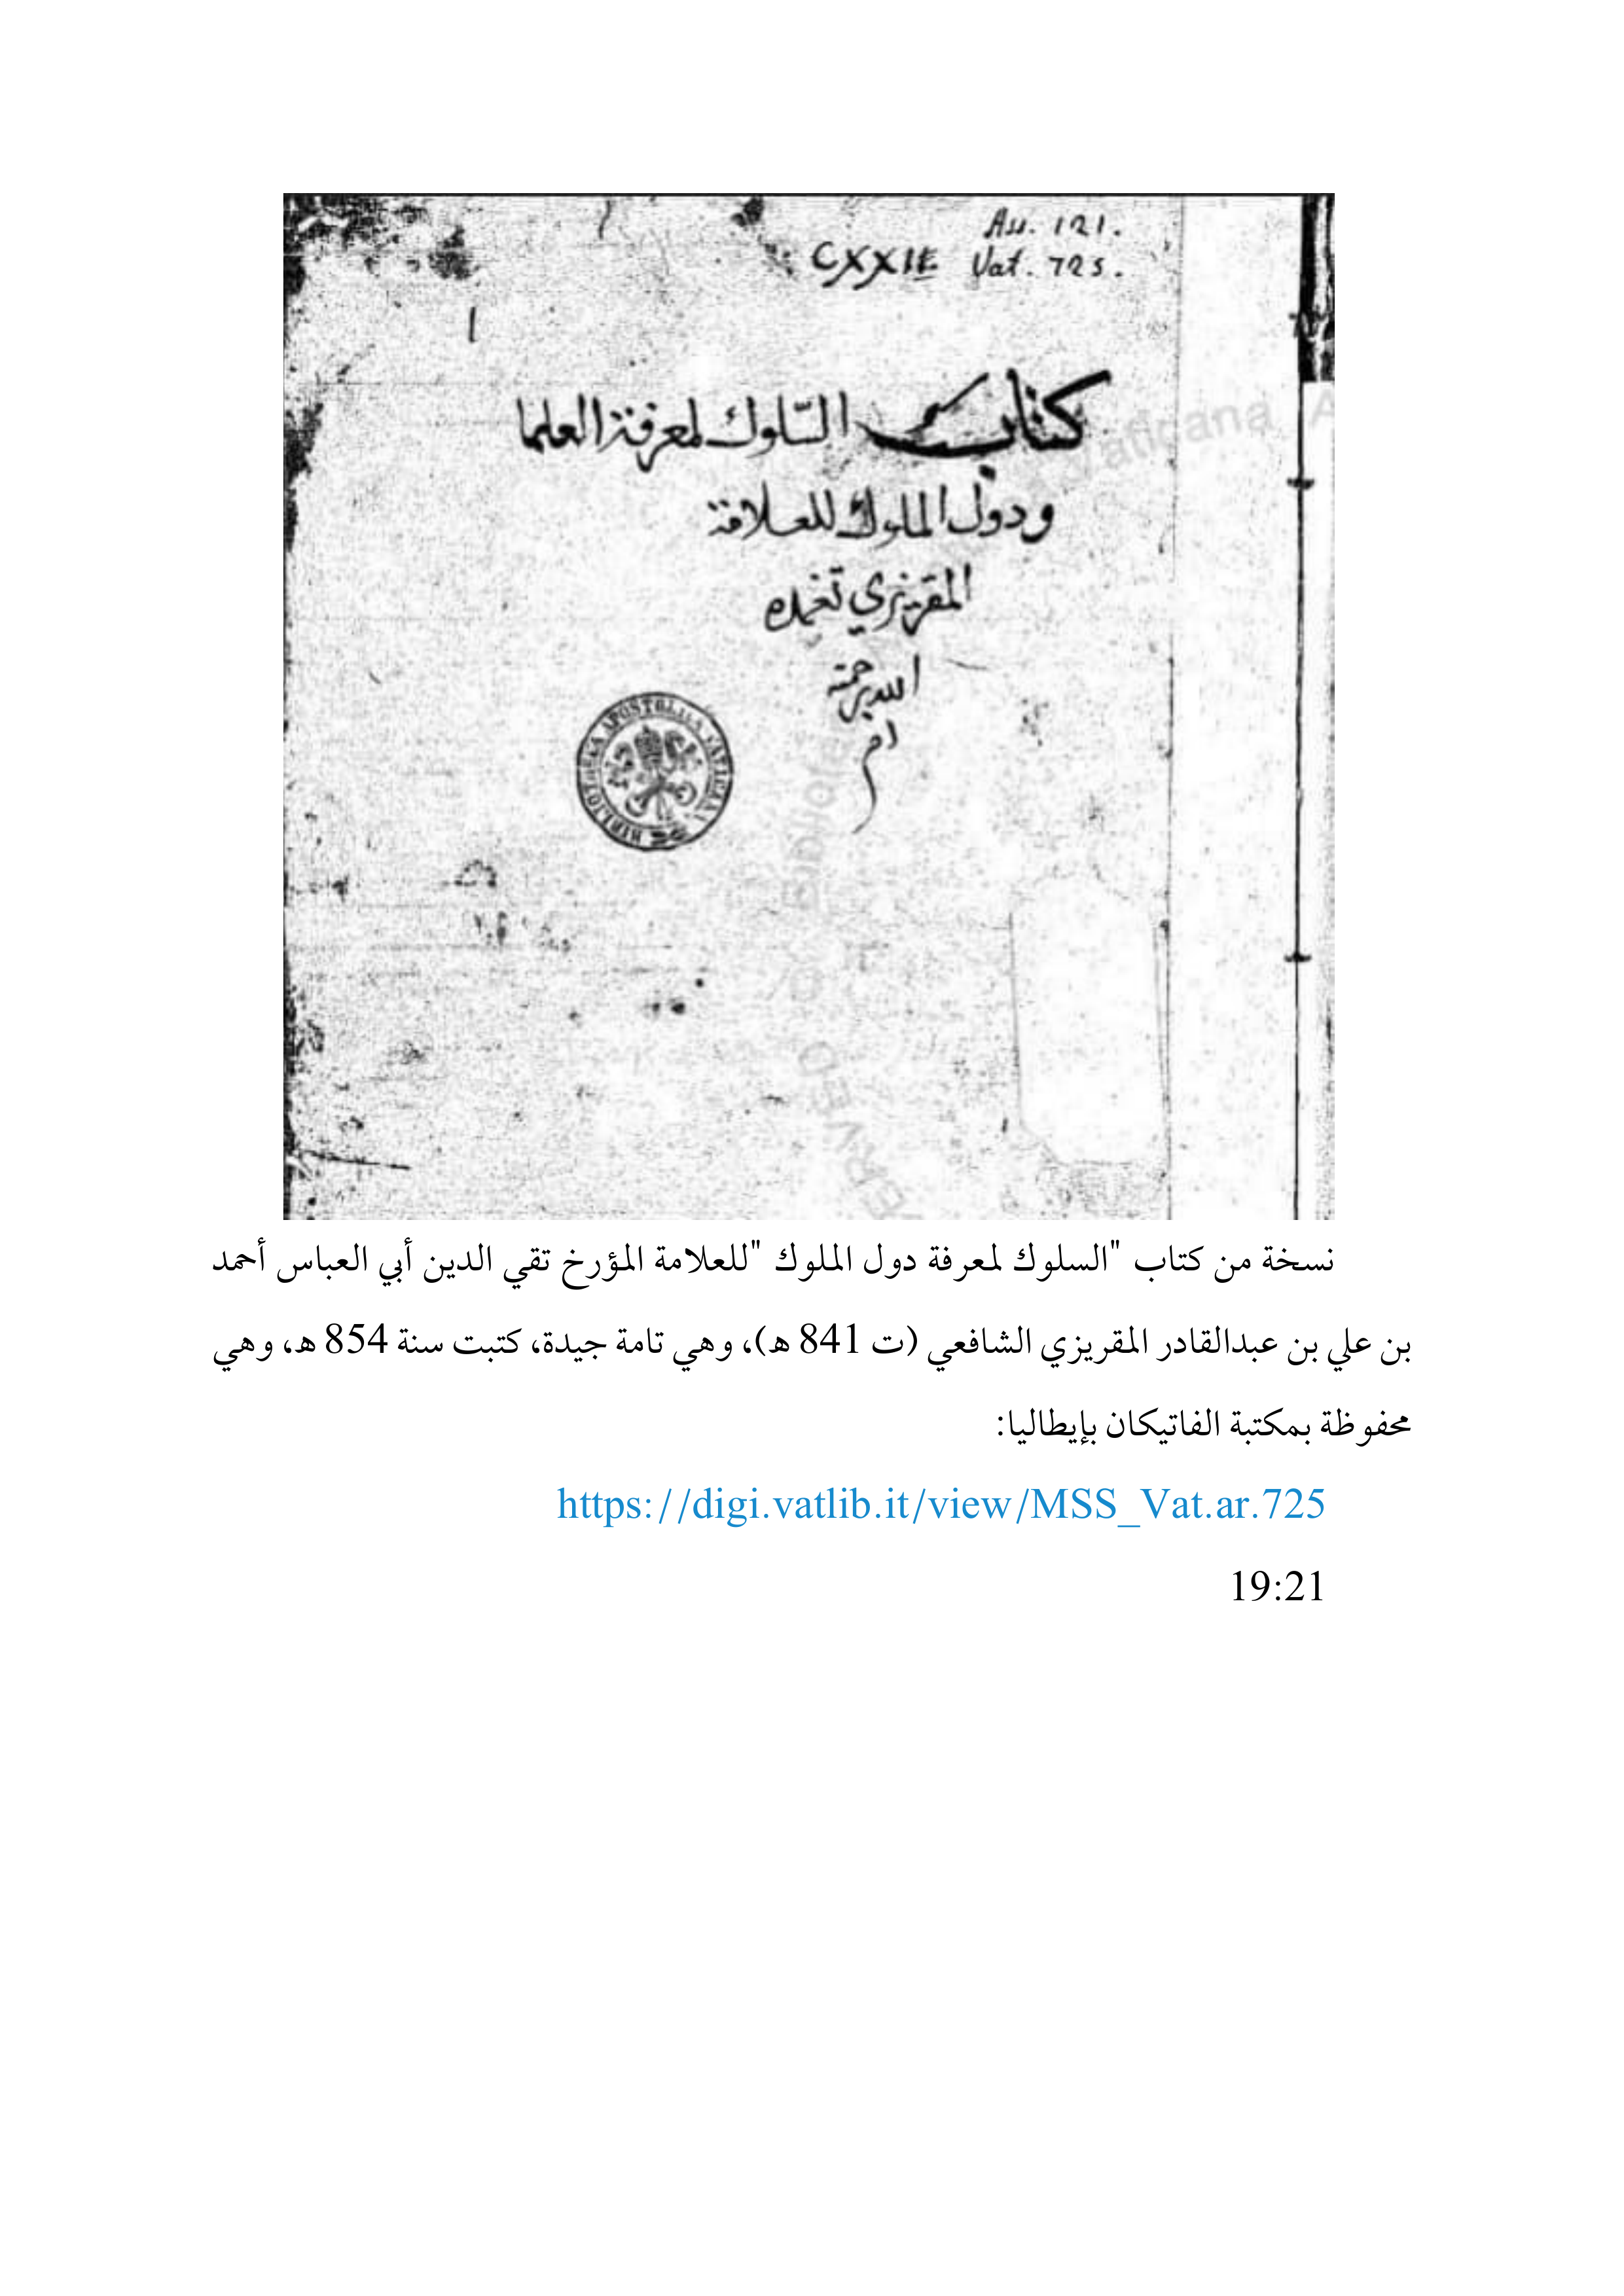 As. 121.
CXXIE Vat. 725.
1
كتاب السّلوك لمعرفة العلما
ودول الملوك للعلامة
المقريزي تغمده
الله برحمته
ام
BIBLIOTECA APOSTOLICA VATICANA
نسخة من كتاب "السلوك لمعرفة دول الملوك "للعلامة المؤرخ تقي الدين أبي العباس أحمد
بن علي بن عبدالقادر المقريزي الشافعي (ت 841 هـ)، وهي تامة جيدة، كتبت سنة 854 هـ، وهي
محفوظة بمكتبة الفاتيكان بإيطاليا:
https://digi.vatlib.it/view/MSS_Vat.ar.725
19:21